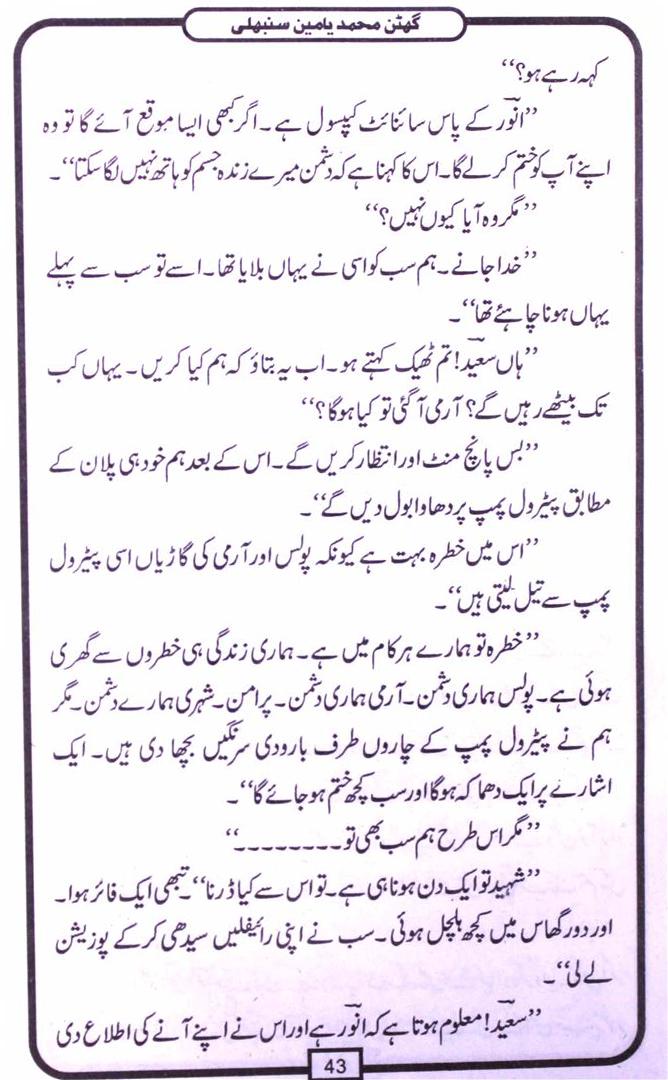 گھٹن محمد یامین سنبھلی
کہہ رہے ہو؟‘‘
’’انوؔر کے پاس سائنائٹ کیپسول ہے۔ اگر کبھی ایسا موقع آئے گا تو وہ
اپنے آپ کو ختم کر لے گا۔ اس کا کہنا ہے کہ دشمن میرے زندہ جسم کو ہاتھ نہیں لگا سکتا‘‘۔
’’مگر وہ آیا کیوں نہیں؟‘‘
’’خدا جانے۔ ہم سب کو اسی نے یہاں بلایا تھا۔ اسے تو سب سے پہلے
یہاں ہونا چاہئے تھا‘‘۔
’’ہاں سعیؔد! تم ٹھیک کہتے ہو۔ اب یہ بتاؤ کہ ہم کیا کریں۔ یہاں کب
تک بیٹھے رہیں گے؟ آرمی آگئی تو کیا ہوگا؟‘‘
’’بس پانچ منٹ اور انتظار کریں گے۔ اس کے بعد ہم خود ہی پلان کے
مطابق پیٹرول پمپ پر دھاوا بول دیں گے‘‘۔
’’اس میں خطرہ بہت ہے کیونکہ پولس اور آرمی کی گاڑیاں اسی پیٹرول
پمپ سے تیل لیتی ہیں‘‘۔
’’خطرہ تو ہمارے ہر کام میں ہے۔ ہماری زندگی ہی خطروں سے گھری
ہوئی ہے۔ پولس ہماری دشمن۔ آرمی ہماری دشمن۔ پرامن۔ شہری ہمارے دشمن۔ مگر
ہم نے پیٹرول پمپ کے چاروں طرف بارودی سرنگیں بچھا دی ہیں۔ ایک
اشارے پر ایک دھماکہ ہوگا اور سب کچھ ختم ہو جائے گا‘‘۔
’’مگر اس طرح ہم سب بھی تو۔۔۔۔۔۔۔۔‘‘
’’شہید تو ایک دن ہونا ہی ہے۔ تو اس سے کیا ڈرنا‘‘۔ تبھی ایک فائر ہوا۔
اور دور گھاس میں کچھ ہلچل ہوئی۔ سب نے اپنی رائیفلیں سیدھی کر کے پوزیشن
لے لی‘‘۔
’’سعیؔد! معلوم ہوتا ہے کہ انوؔر ہے اور اس نے اپنے آنے کی اطلاع دی
43